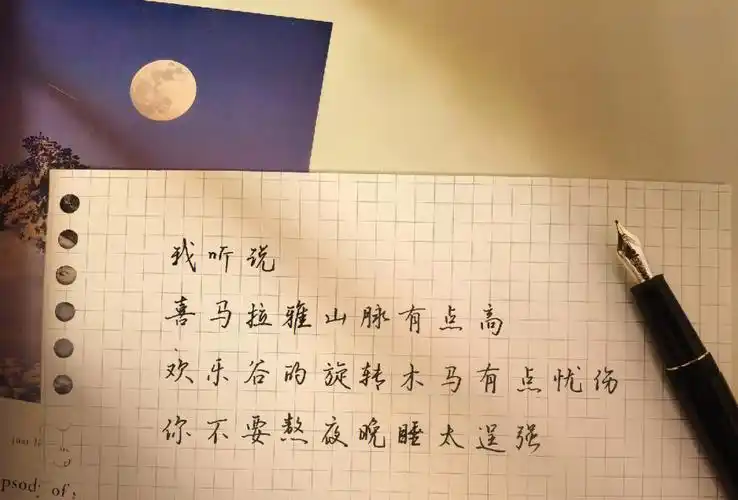 我听说
喜马拉雅山脉有点高
欢乐谷的旋转木马有点忧伤
你不要熬夜晚睡太逞强
psody of